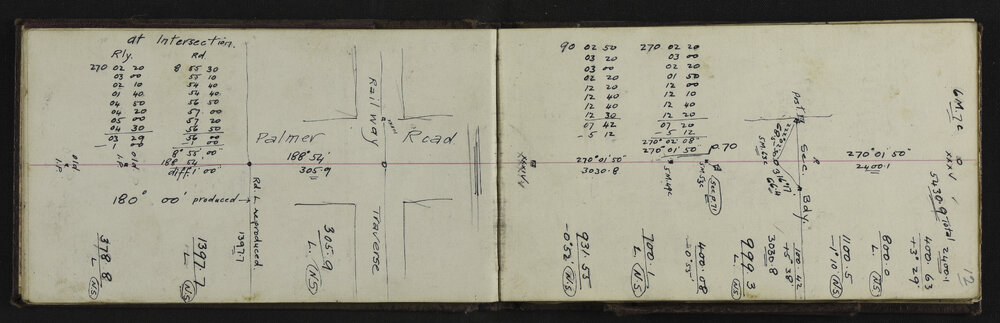 at Intersection.
Rly. Rd.
270 02 20 8 55 30
03 00 55 10
02 10 54 40
01 40 54 40
04 50 56 50
04 20 57 00
05 00 57 20
04 30 56 50
03 29 56 00
1 00 -1 00
8° 55' 00"
old I.P. 188° 54'
diff 1' 00"
old
I.P.
180° 00' produced→
Rd. L. reproduced
1397.7
Palmer Road
188° 54'
305.9
Railway
Traverse
305.9
L. (NS)
1397.7
L. (NS)
378.8
L. (NS)
90 02 50 270 02 20
03 20 03 00
03 00 02 20
02 20 01 50
12 00 12 00
12 40 12 10
12 40 12 40
12 30 12 20
07 42 07 20
-5 12 -5 12
270° 02' 08"
270° 01' 50" p.70
270° 01' 50"
3030.8
XXXIV
Sec. Bdy.
270° 01' 50"
2400.1
XXXV
GM7c
931.55
-0°52' (NS)
700.1
L. (NS)
400.08
-0°55'
999.3
L. (NS)
3030.8
100.42
+5°38'
1100.5
-1°10' (NS)
800.0
L. (NS)
400.63
+3°29'
5430.9 Total 2400.1
12